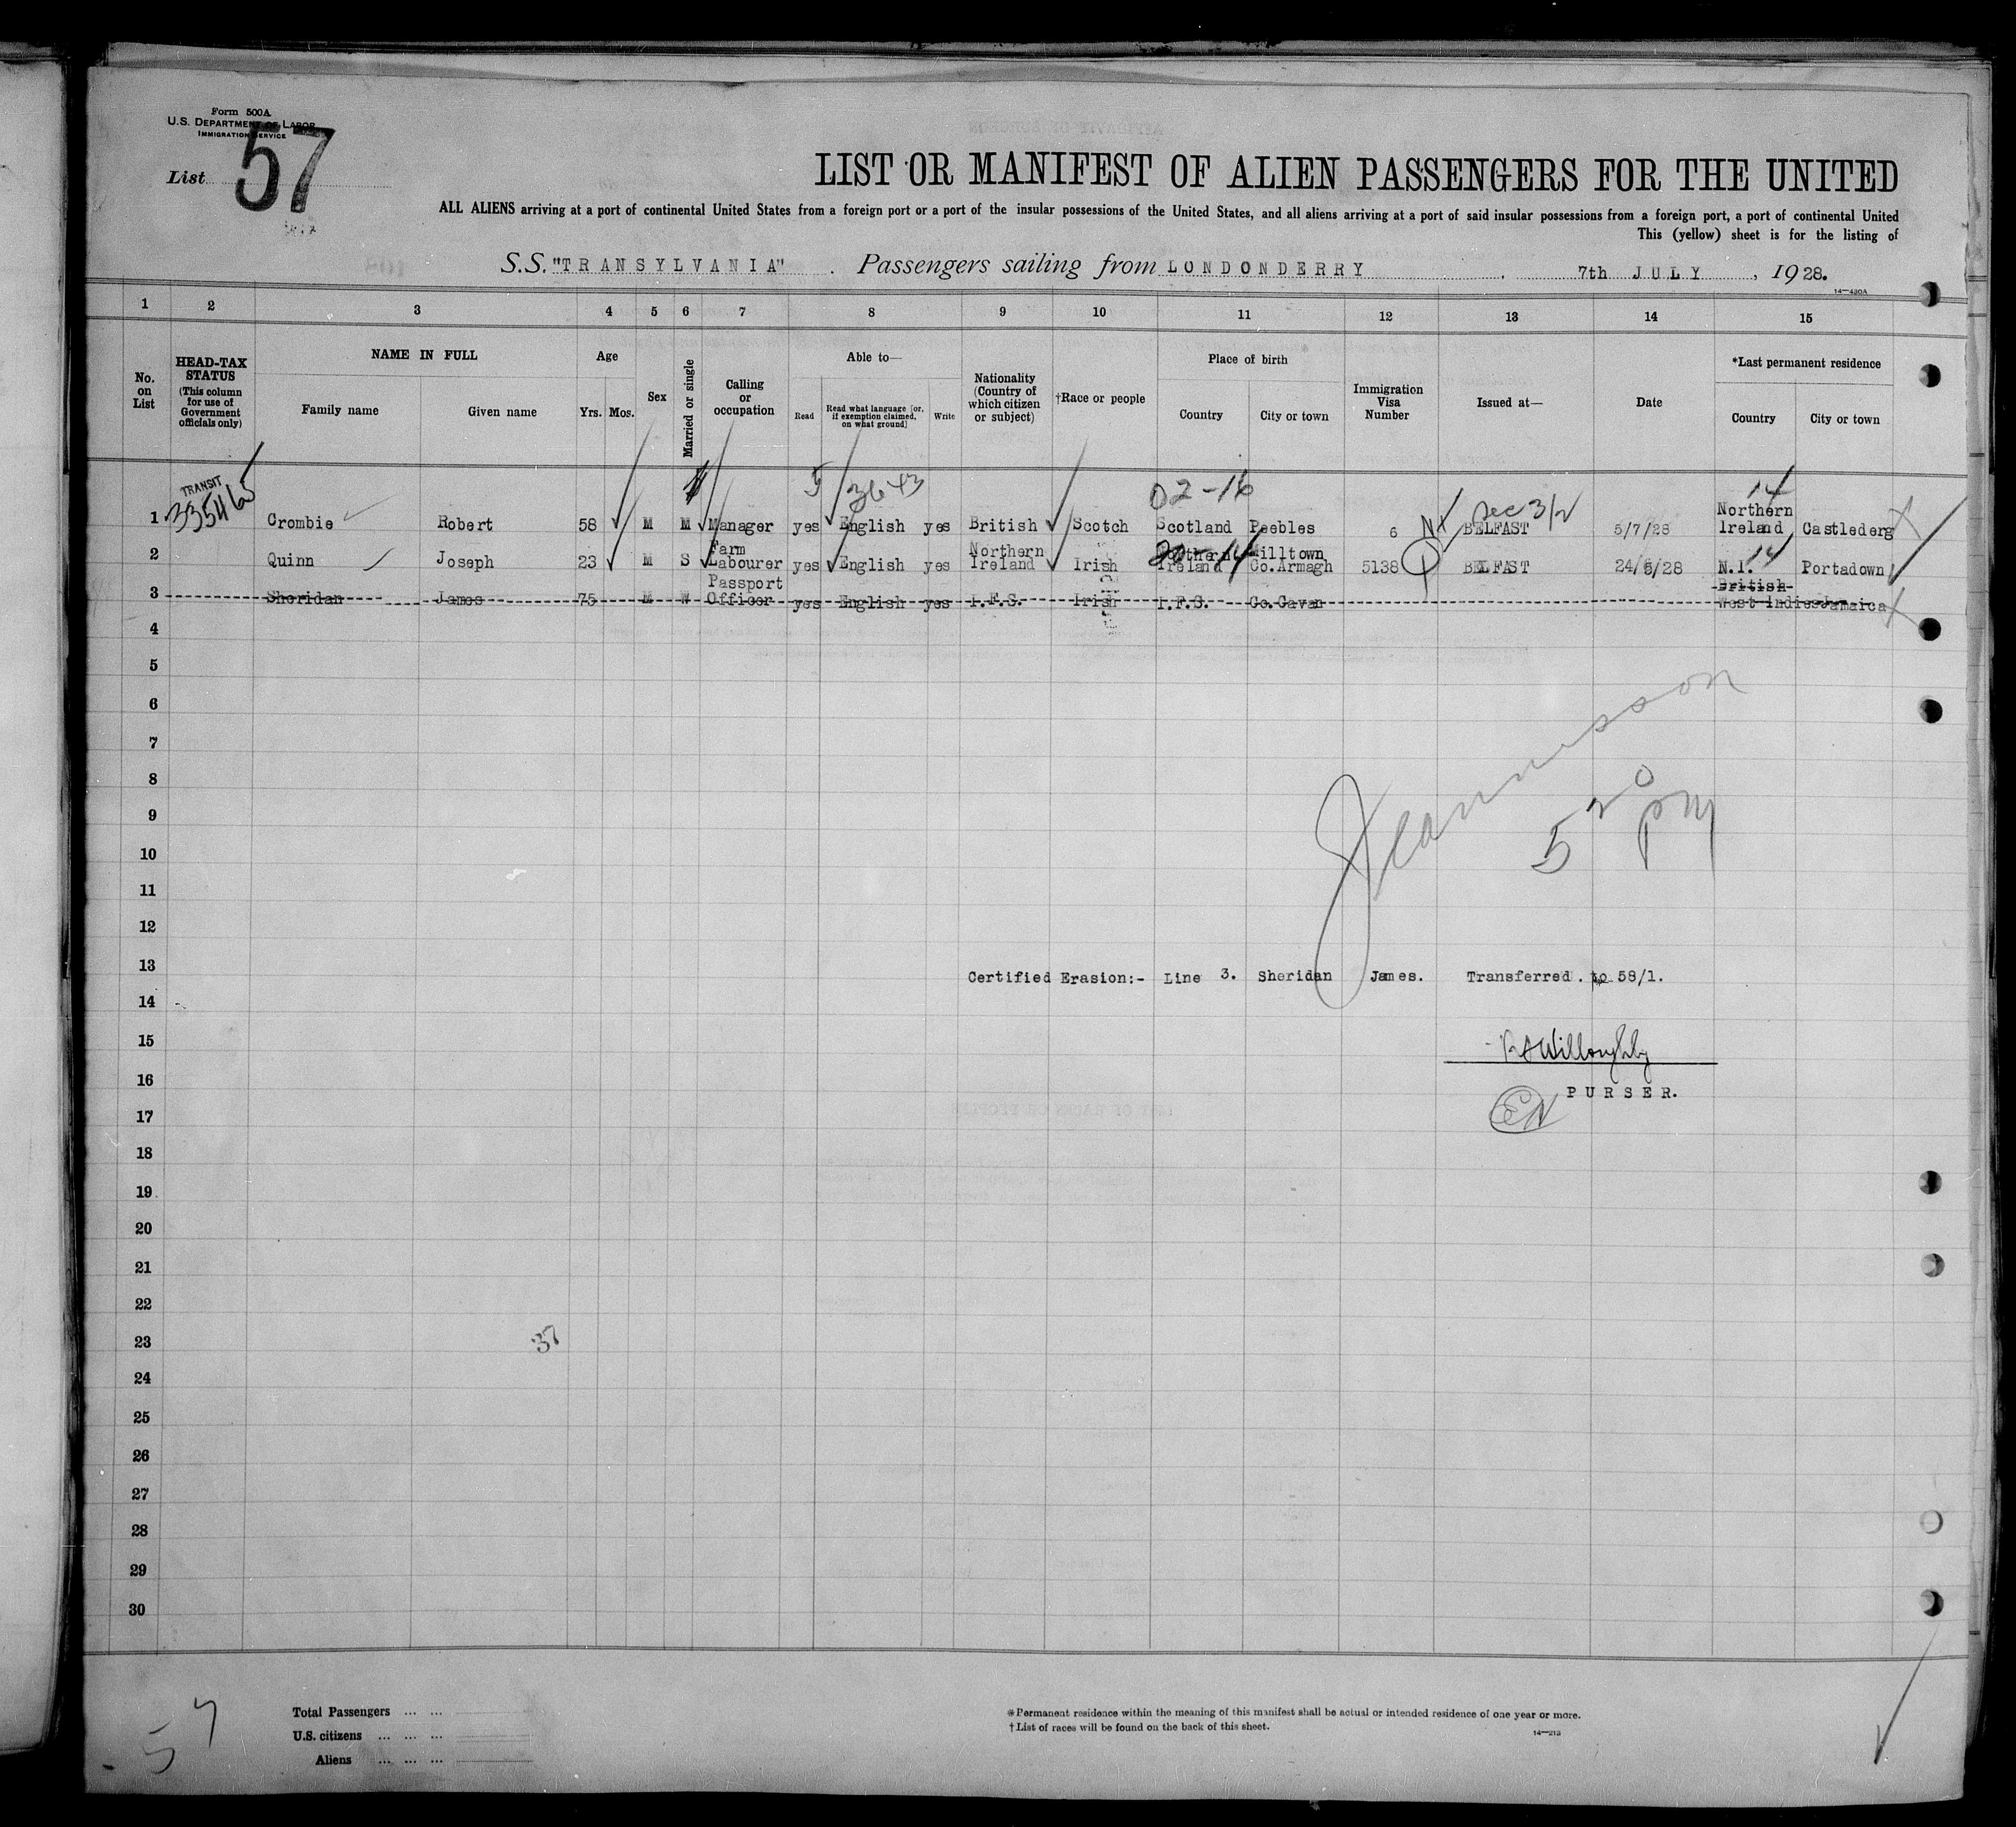 Form 500A
U.S. DEPARTMENT OF LABOR
IMMIGRATION SERVICE
List 57
LIST OR MANIFEST OF ALIEN PASSENGERS FOR THE UNITED
ALL ALIENS arriving at a port of continental United States from a foreign port or a port of the insular possessions of the United States, and all aliens arriving at a port of said insular possessions from a foreign port, a port of continental United
This (yellow) sheet is for the listing of
S.S. "TRANSYLVANIA" . Passengers sailing from LONDONDERRY , 7th JULY , 1928.
14—430A
1 2 3 4 5 6 7 8 9 10 11 12 13 14 15
No. on List
HEAD-TAX STATUS (This column for use of Government officials only)
NAME IN FULL
Family name Given name
Age
Yrs. Mos.
Sex
Married or single
Calling or occupation
Able to—
Read Read what language [or, if exemption claimed, on what ground] Write
Nationality (Country of which citizen or subject)
†Race or people
Place of birth
Country City or town
Immigration Visa Number
Issued at—
Date
*Last permanent residence
Country City or town
TRANSIT 335465 5 3643 02-16 Sec 3/2 14
1 Crombie Robert 58 M M Manager yes English yes British Scotch Scotland Peebles 6 BELFAST 5/7/28 Northern Ireland Castlederg
2 Quinn Joseph 23 M S Farm Labourer yes English yes Northern Ireland Irish Northern Ireland Milltown Co.Armagh 5138 BELFAST 24/5/28 N.I. 14 Portadown
3 Sheridan James 75 M W Passport Officer yes English yes I.F.S. Irish I.F.S. Co.Cavan British West Indies Jamaica
4
5
6
7
8
9
10
11
12
13
14
15
16
17
18
19
20
21
22
23
24
25
26
27
28
29
30
5 20 pm
Certified Erasion:- Line 3. Sheridan James. Transferred. to 58/1.
Willoughby
PURSER.
EN
37
57
Total Passengers ... ...
U.S. citizens ... ... ...
Aliens ... ... ...
*Permanent residence within the meaning of this manifest shall be actual or intended residence of one year or more.
†List of races will be found on the back of this sheet.
14—213